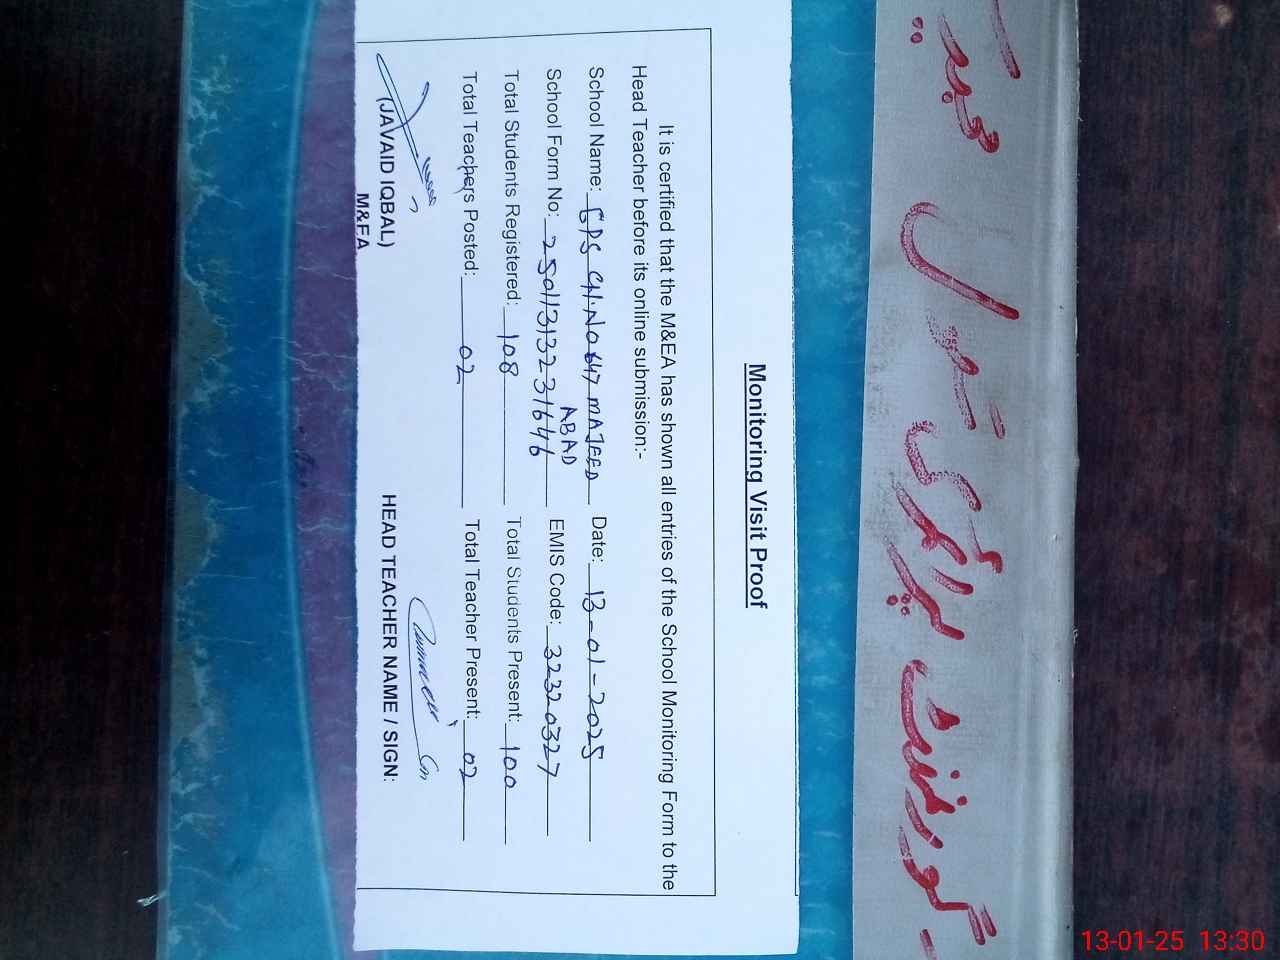 گورنمنٹ پرائمری سکول مجید
Monitoring Visit Proof
It is certified that the M&EA has shown all entries of the School Monitoring Form to the
Head Teacher before its online submission:-
School Name: GPS CH.NO 647 MAJEED ABAD Date: 13-01-2025
School Form No: 25011313231646 EMIS Code: 32320327
Total Students Registered: 108 Total Students Present: 100
Total Teachers Posted: 02 Total Teacher Present: 02
(JAVAID IQBAL) HEAD TEACHER NAME / SIGN:
M&EA
13-01-25 13:30